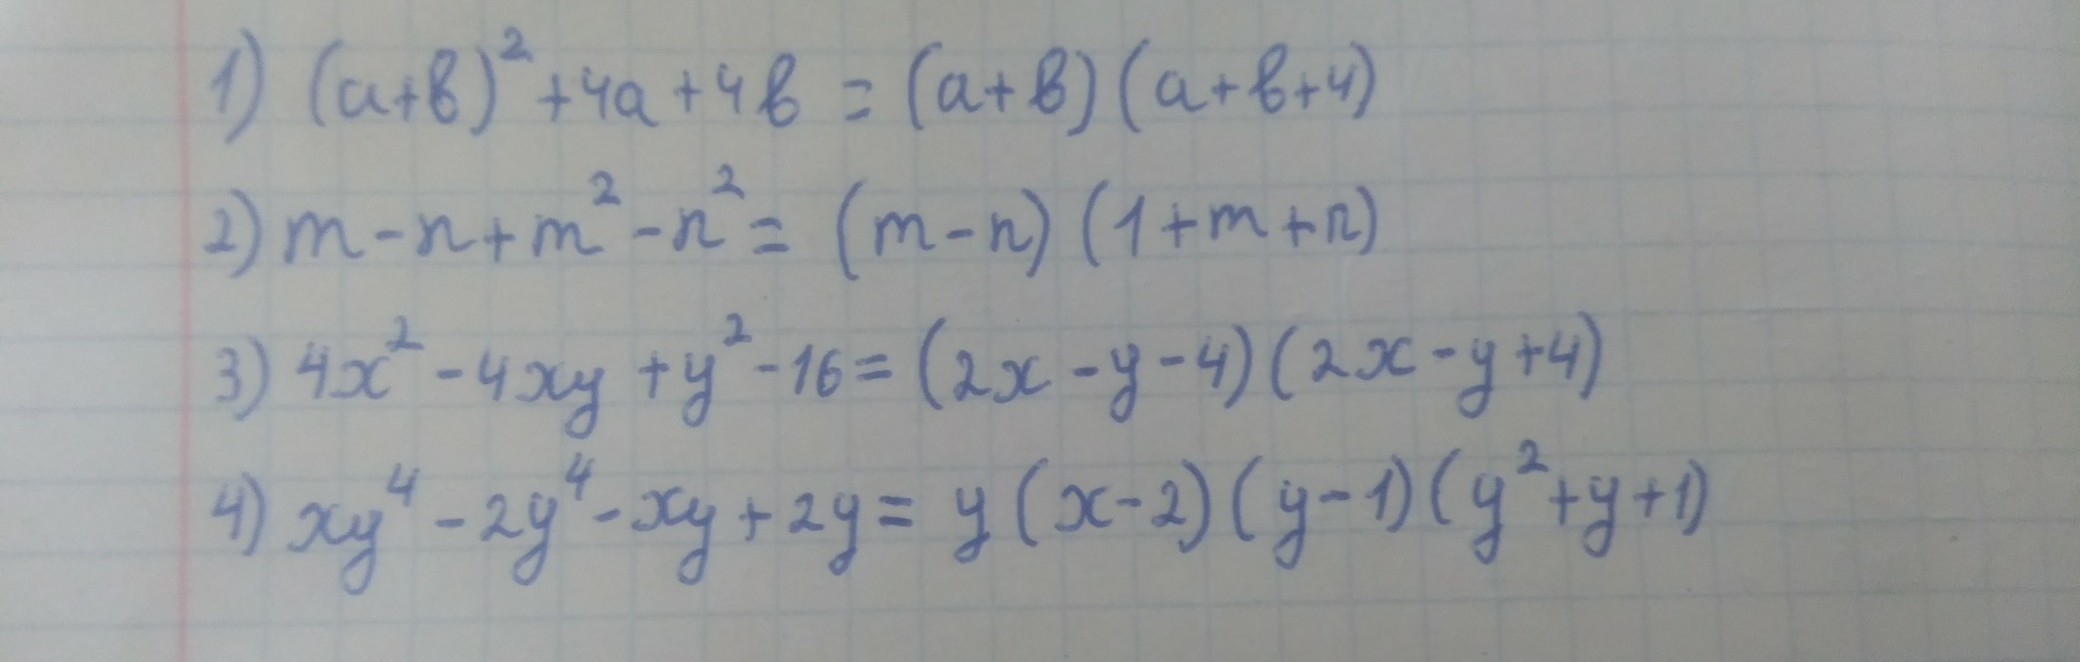 1) (a+b)² +4a+4b = (a+b)(a+b+4)
2) m-n+m²-n² = (m-n)(1+m+n)
3) 4x²-4xy+y²-16=(2x-y-4)(2x-y+4)
4) xy⁴-2y⁴-xy+2y= y(x-2)(y-1)(y²+y+1)